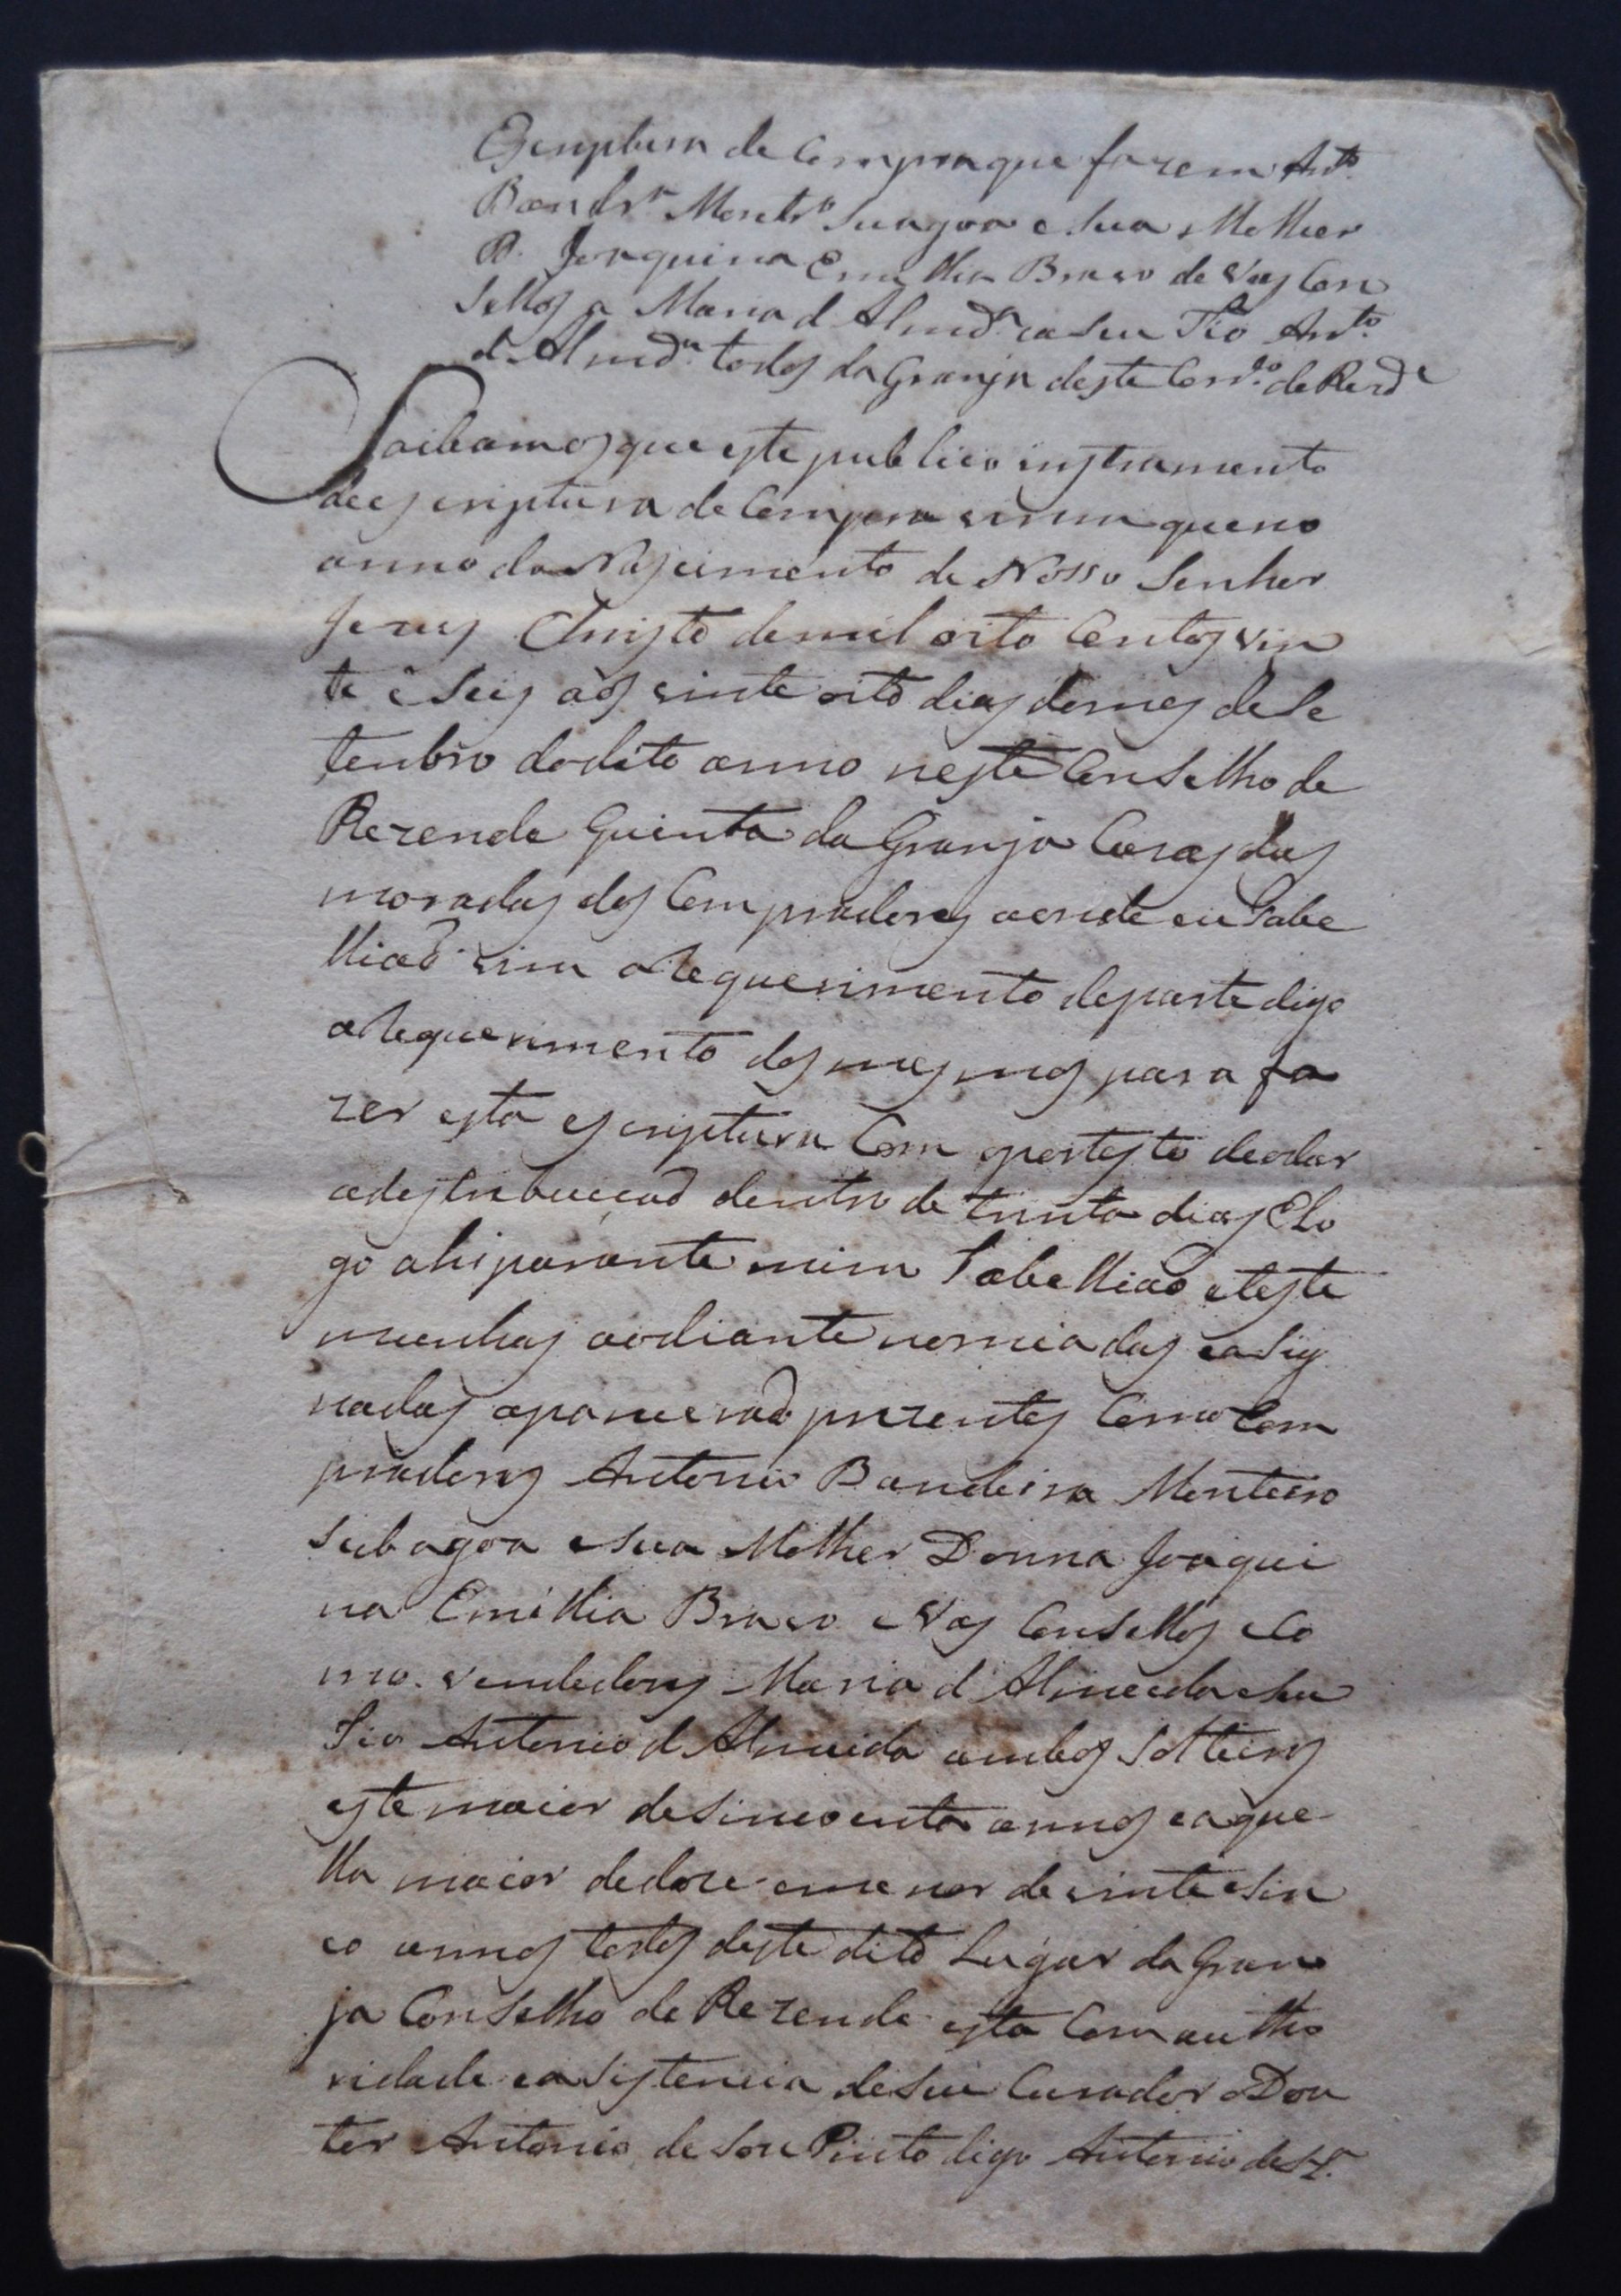 Escriptura de Compra que fazem Antº
Bandrª Montrº Suagoa e sua Molher
D. Joaquina Emillia Bravo de Vas Con
sellos a Maria d Almdª e a seu Tio Antº
d Almdª todos da Granja deste Consº de Rezde
Saibam os que este publico instramento
de escriptura de Compra virem que no
anno do Nascimento de Nosso Senhor
Jezus Christo de mil oito Centos vin
te e seis aos vinte oito dias do mes de Se
tenbro do dito anno neste Conselho de
Rezende Quinta da Granja Cazas das
moradas dos Compradores aonde eu Tabe
lliaõ vim a Requerimento de parte digo
a Requerimento dos mesmos para fa
zer esta escriptura Com o protesto de a dar
a destribuiçaõ dentro de trinta dias E lo
go ahi parante mim Tabelliaõ e teste
munhas ao diante nomiadas e a Sig
nadas aparceraõ prezentes Como Com
pradores Antonio Bandeira Monteiro
Subagoa e sua Molher Donna Joaqui
na Emillia Bravo e Vas Consellos e Co
mo vendedores Maria d Almeida e seu
Tio Antonio d Almeida ambos Solteiros
este maior de sincoenta annos e aque
lla maior de doze e menor de vinte e sin
co annos todos deste dito Lugar da Gran
ja Conselho de Rezende esta Com autho
ridade e a sistencia de seu Curador o Dou
tor Antonio de Pinto digo Antonio de